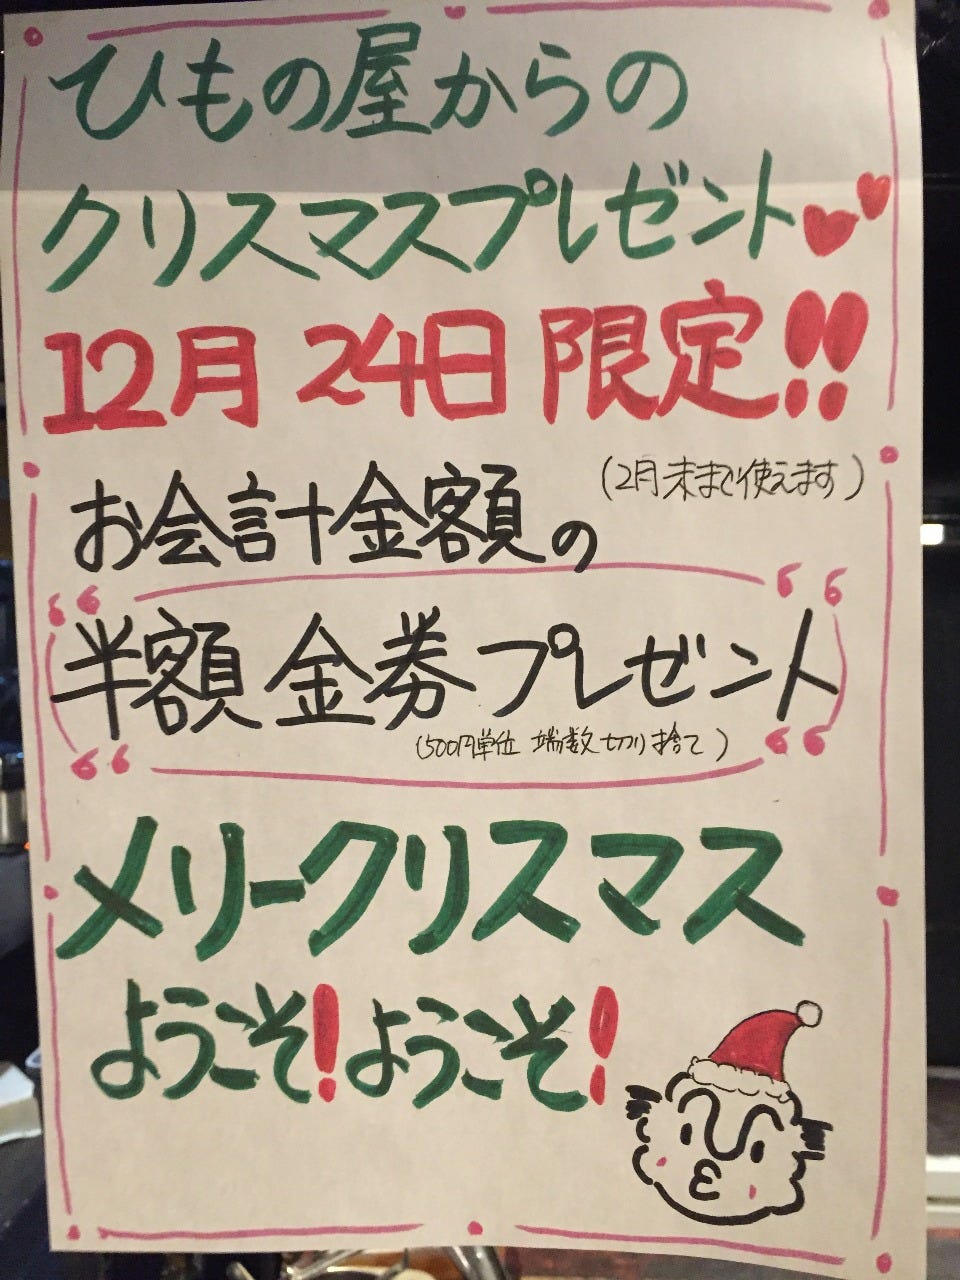 ひもの屋からの
クリスマスプレゼント
12月24日限定!!
(2月末まで使えます)
お会計金額の
半額金券プレゼント
(500円単位 端数切り捨て)
メリークリスマス
ようこそ!ようこそ!